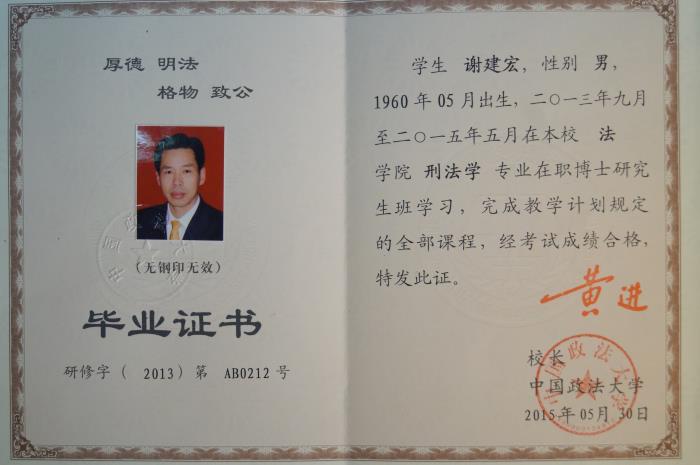 厚德 明法
格物 致公
（无钢印无效）
毕业证书
研修字（ 2013）第 AB0212 号
学生 谢建宏，性别 男，
1960 年 05 月出生，二〇一三年九月
至二〇一五年五月在本校 法
学院 刑法学 专业在职博士研究
生班学习，完成教学计划规定
的全部课程，经考试成绩合格，
特发此证。
黄进
校长
中国政法大学
2015年 05月 30日
中国政法大学